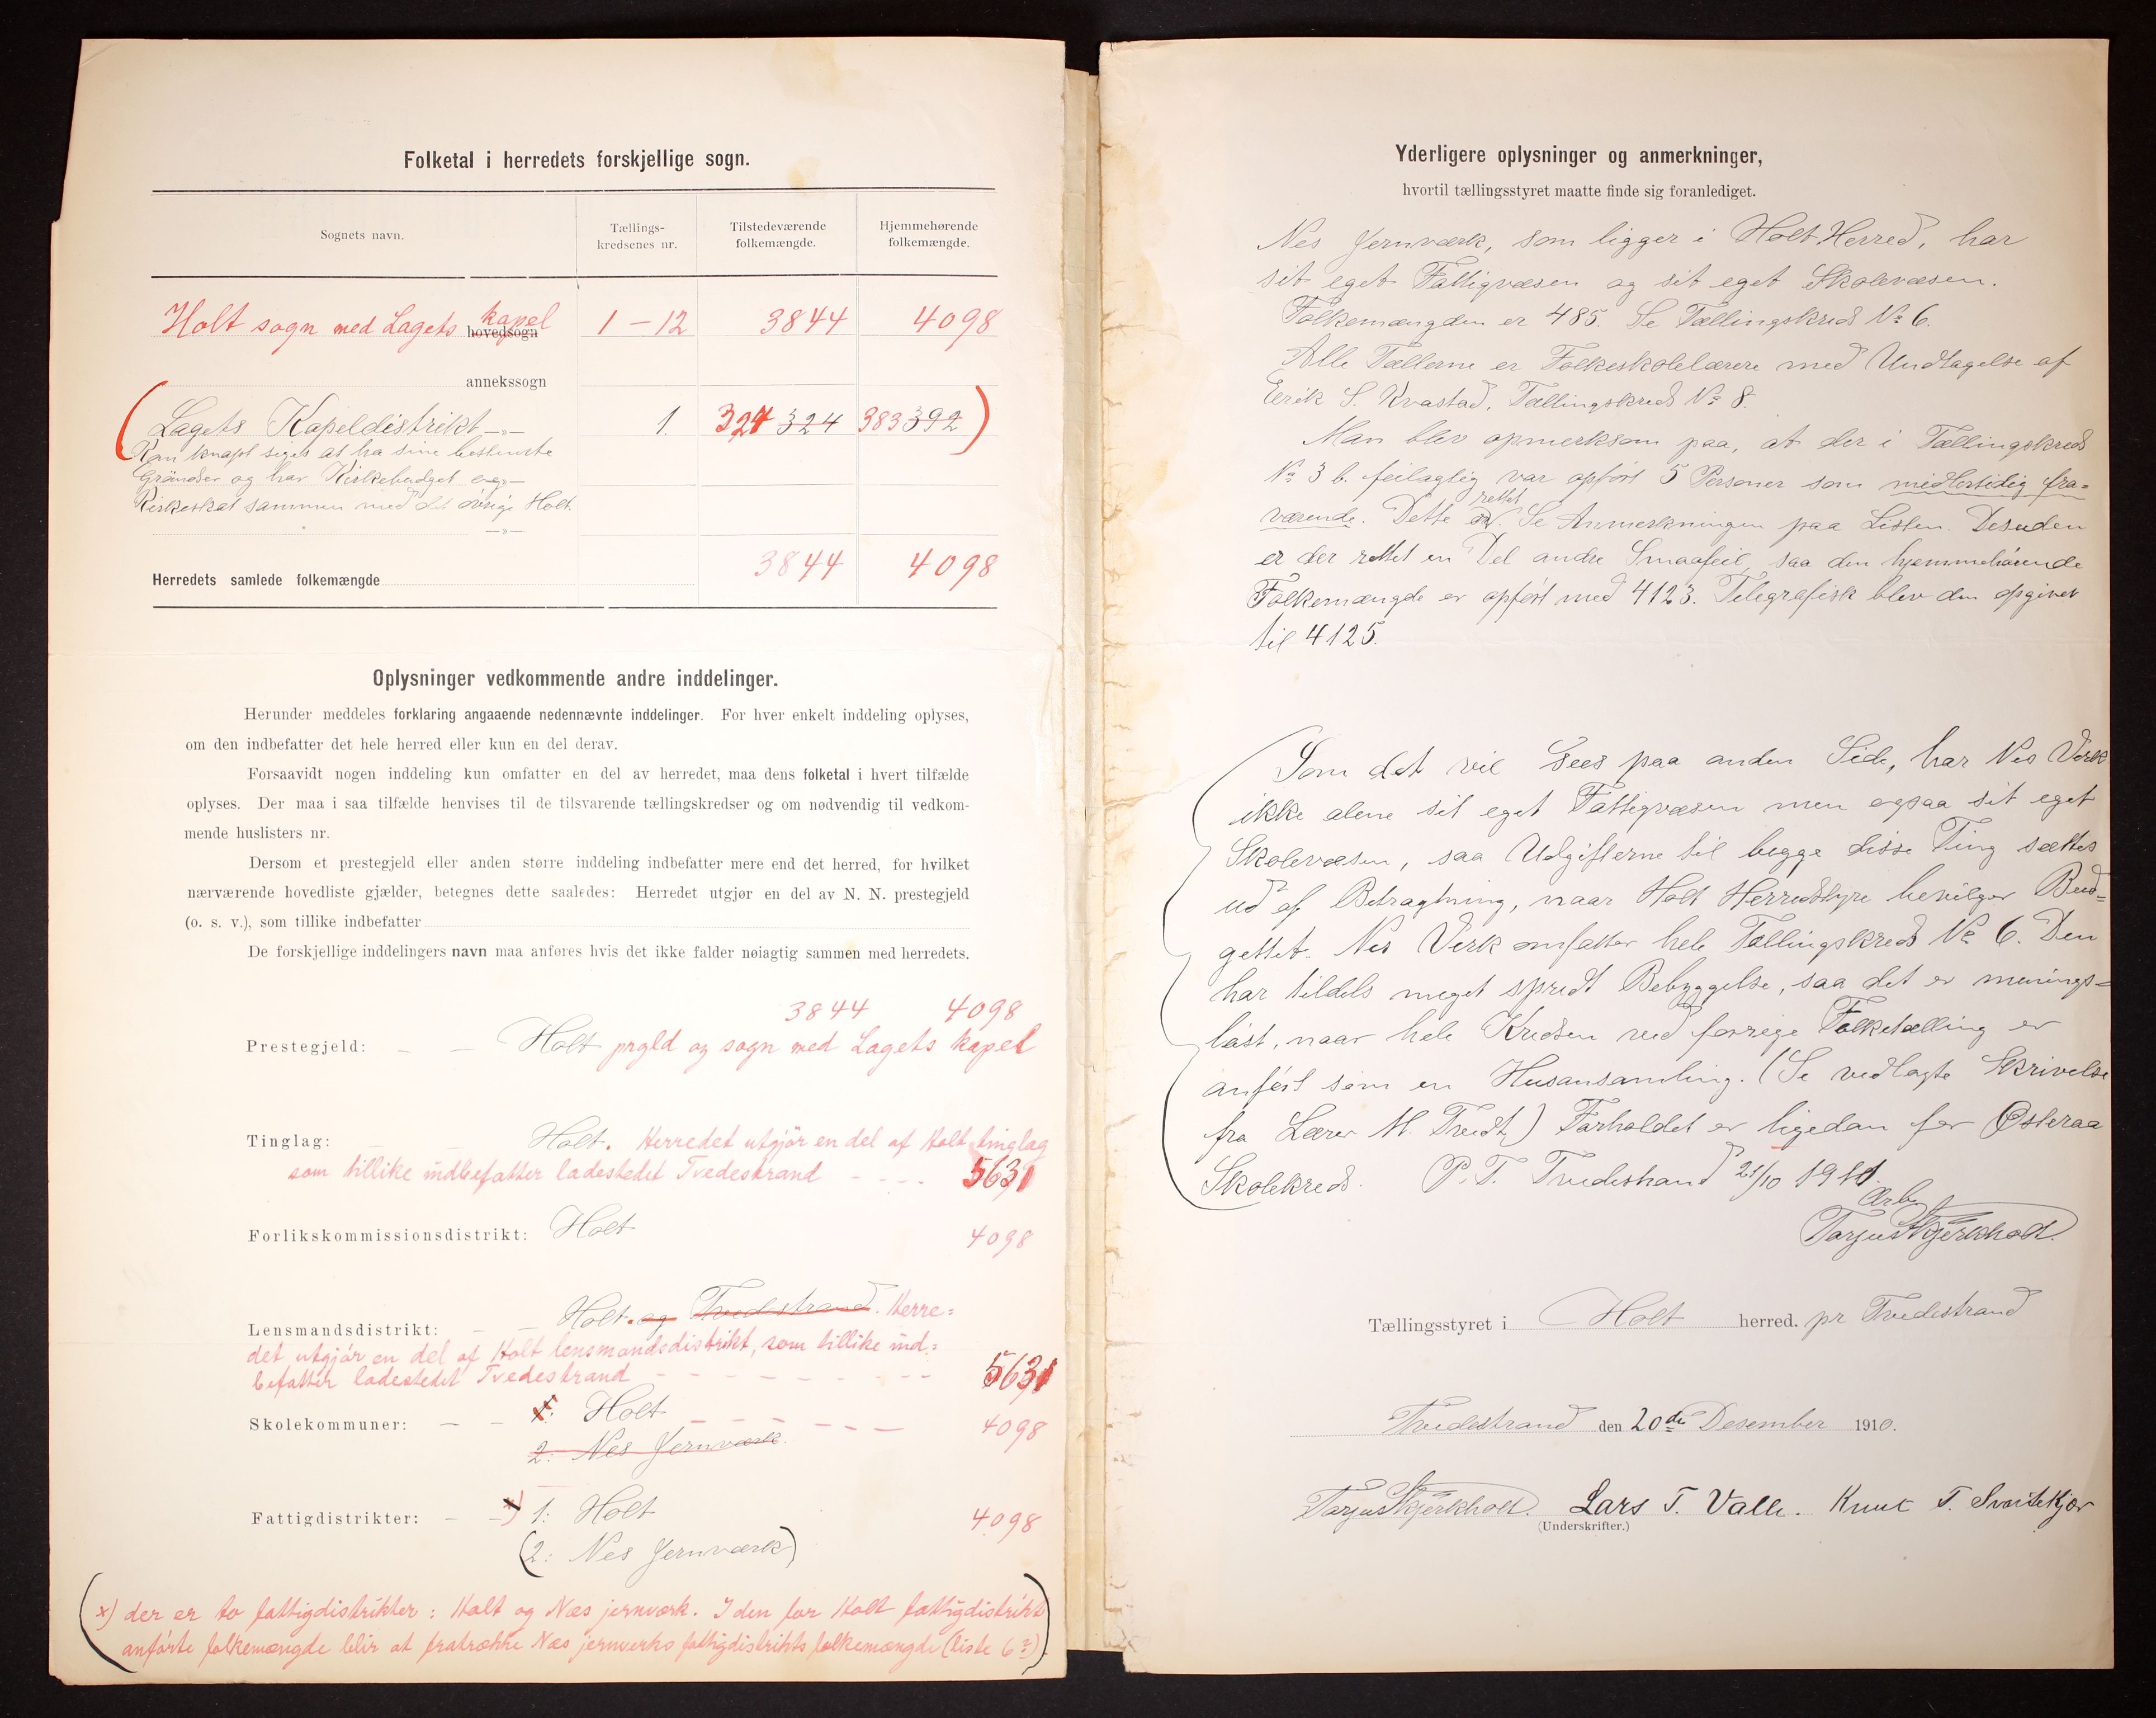 Folketal i herredets forskjellige sogn.
Sognets navn.
Tællings-
kredsenes nr.
Tilstedeværende
folkemængde.
Hjemmehørende
folkemængde.
Holt sogn med Lagets kapel hovedsogn 1-12 3844 4098
annekssogn
(Lagets Kapeldistrikt -"- 1. 324 324 383 392)
Kan knapt siges at ha sine bestemte
Grændser og har Kirkebudget og
Kirkeskat sammen med det øvrige Holt.
-"-
Herredets samlede folkemængde 3844 4098
Oplysninger vedkommende andre inddelinger.
Herunder meddeles forklaring angaaende nedennævnte inddelinger. For hver enkelt inddeling oplyses,
om den indbefatter det hele herred eller kun en del derav.
Forsaavidt nogen inddeling kun omfatter en del av herredet, maa dens folketal i hvert tilfælde
oplyses. Der maa i saa tilfælde henvises til de tilsvarende tællingskredser og om nødvendig til vedkom-
mende huslisters nr.
Dersom et prestegjeld eller anden større inddeling indbefatter mere end det herred, for hvilket
nærværende hovedliste gjælder, betegnes dette saaledes: Herredet utgjør en del av N. N. prestegjeld
(o. s. v.), som tillike indbefatter
De forskjellige inddelingers navn maa anføres hvis det ikke falder nøiagtig sammen med herredets.
3844 4098
Prestegjeld: — — Holt prgld og sogn med Lagets kapel
Tinglag: — — Holt. Herredet utgjör en del af Holt tinglag
som tillike indbefatter ladestedet Tvedestrand - - - - 5631
Forlikskommissionsdistrikt: Holt 4098
Lensmandsdistrikt: — — Holt. og Tvedestrand. Herre=
det utgjör en del af Holt lensmandsdistrikt, som tillike ind=
befatter ladestedet Tvedestrand - - - - - - - - - 5631
Skolekommuner: — — 1: Holt - - - - - - 4098
2: Nes Jernværk.
Fattigdistrikter: — — x) 1: Holt 4098
(2: Nes Jernværk)
(x) der er to fattigdistrikter: Holt og Næs jernverk. I den for Holt fattigdistrikt
anförte folkemængde blir at fratrække Næs jernverks fattigdistrikts folkemængde (liste 6)
Yderligere oplysninger og anmerkninger,
hvortil tællingsstyret maatte finde sig foranlediget.
Nes Jernværk, som ligger i Holt Herred, har
sit eget Fattigvæsen og sit eget Skolevæsen.
Folkemængden er 485. Se Tællingskreds No 6.
Alle Tællerne er Folkeskolelærere med Undtagelse af
Eerik S. Kvastad, Tællingskreds No 8.
Man blev opmerksom paa, at der i Tællingskreds
No 3 b. feilagtig var opført 5 Personer som midlertidig fra=
værende. Dette er rettet. Se Anmerkningen paa Listen. Desuden
er der rettet en Del andre Smaafeil, saa den hjemmehørende
Folkemængde er opført med 4123. Telegrafisk blev den opgivet
til 4125.
Som det vil sees paa anden Side, har Nes Verk
ikke alene sit eget Fattigvæsen men ogsaa sit eget
Skolevæsen, saa Udgifterne til begge disse Ting sættes
ud af Betragtning, naar Holt Herredstyre bevilger Bud=
gettet. Nes Verk omfatter hele Tællingskreds No 6. Den
har tildels meget spredt Bebyggelse, saa det er menings=
løst, naar hele Kredsen ved forrige Folketælling er
anført som en Husansamling. (Se vedlagte Skrivelse
fra Lærer M. Tredt) Forholdet er ligedan for Østeraa
Skolekreds. P. T. Tvedestrand 21/10 1911.
Ærb.
Tarjus Skjerkholt.
Tællingsstyret i Holt herred. pr Tvedestrand
Tvedestrand den 20de Desember 1910.
Tarjus Skjerkholt. Lars T. Valle. Knut T. Svartekjær
(Underskrifter.)